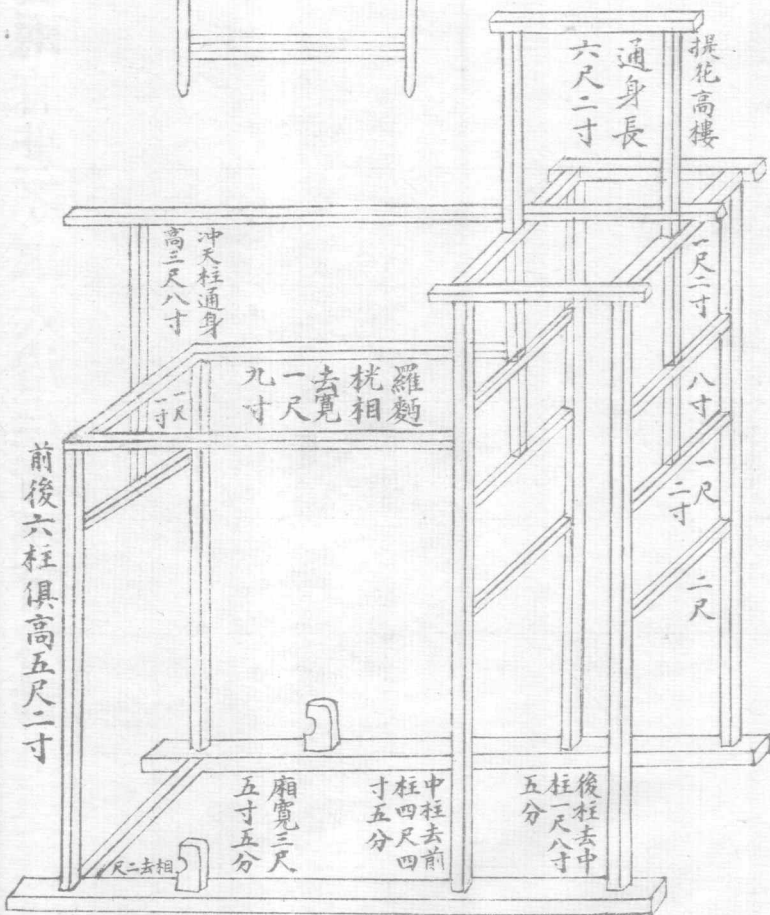 提花高樓
通身長
六尺二寸
一尺二寸
八寸
一尺
二寸
二尺
冲天柱通身
高三尺八寸
羅麵
桄相
去寬
一尺
九寸
一尺
一寸
前後六柱俱高五尺二寸
後柱去中
柱一尺八寸
五分
中柱去前
柱四尺四
寸五分
廂寬三尺
五寸五分
相去二尺